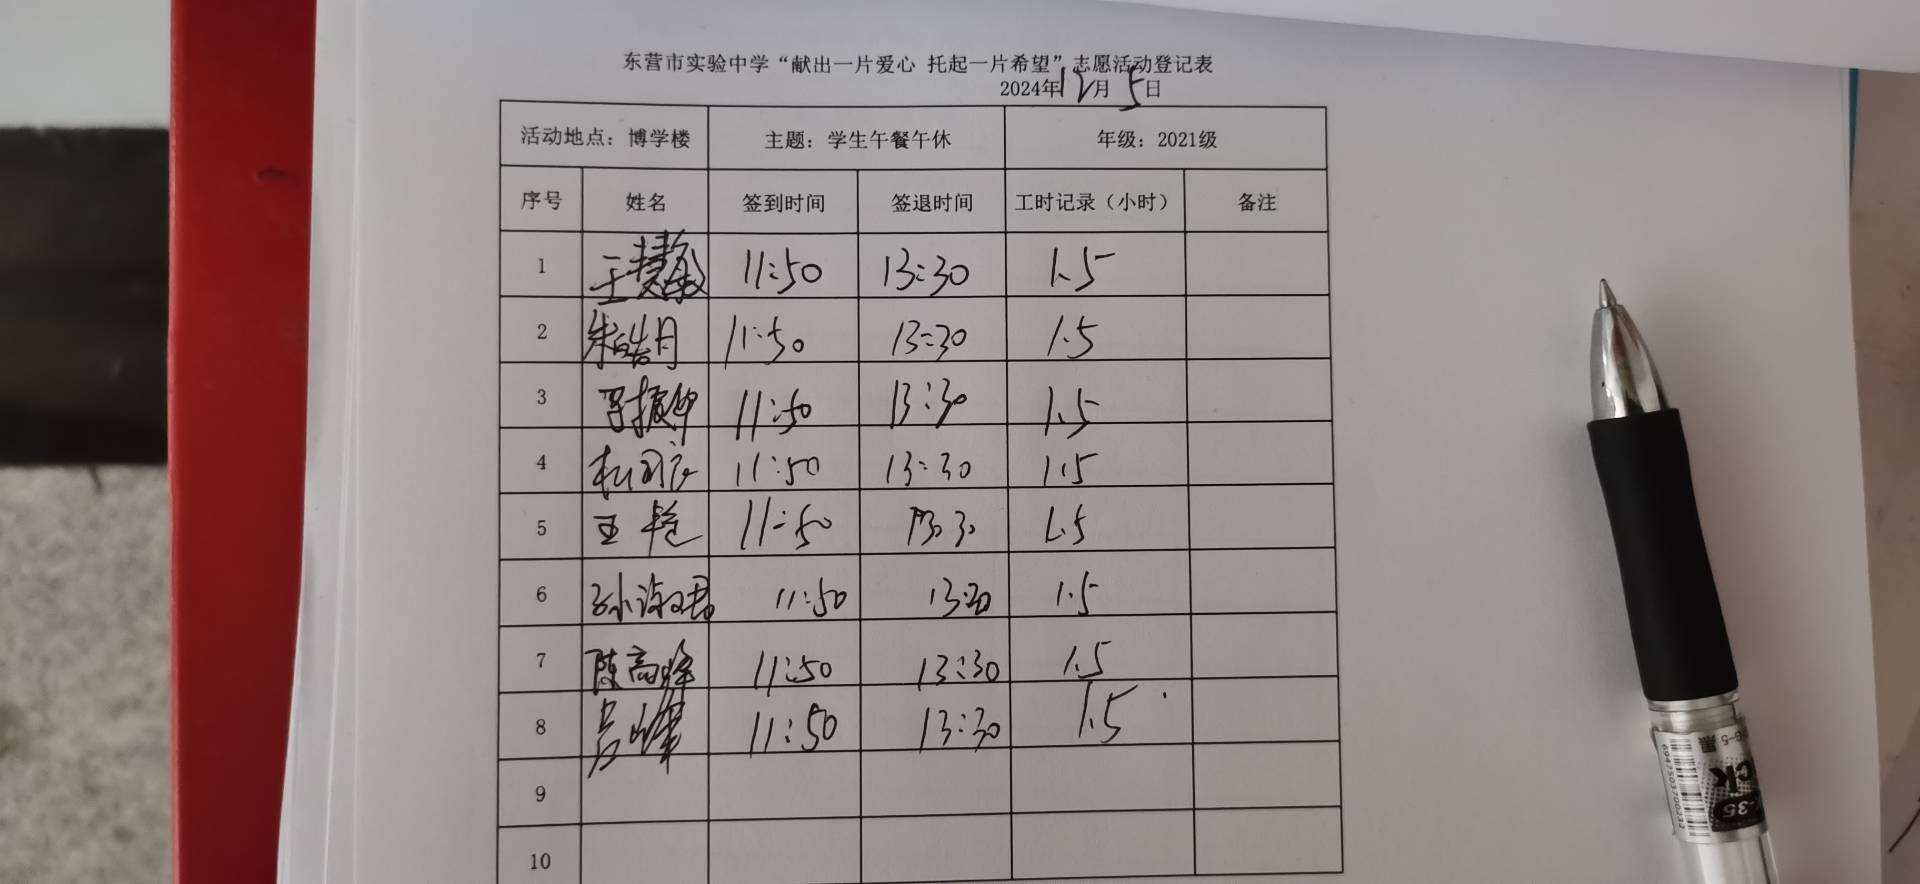 东营市实验中学“献出一片爱心 托起一片希望”志愿活动登记表
2024年12月5日
活动地点：博学楼 主题：学生午餐午休 年级：2021级
序号 姓名 签到时间 签退时间 工时记录（小时） 备注
1 王慧敏 11:50 13:30 1.5
2 朱皓月 11:50 13:30 1.5
3 11:50 13:30 1.5
4 11:50 13:30 1.5
5 王艳 11:50 13:30 1.5
6 孙淑君 11:50 13:30 1.5
7 陈高峰 11:50 13:30 1.5
8 吕峰 11:50 13:30 1.5
9
10
6947503700232